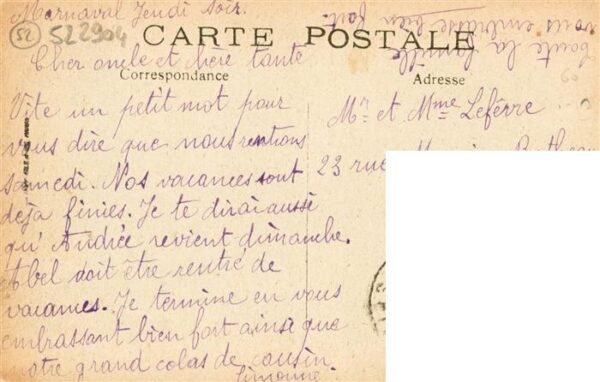 Marnaval Jeudi Soir.
52 522904
CARTE POSTALE
Correspondance
Adresse
Cher oncle et chère tante
Vite un petit mot pour
vous dire que nous rentions
samedi. Nos vacances sont
déja finies. Je te dirai aussi
qu'Andrée revient dimanche.
Abel doit être rentré de
vacances. Je termine en vous
embrassant bien fort ainsi que
notre grand colas de cousin.
Simonne.
toute la famille
vous embrasse bien fort.
Mr et Mme Lefèvre
23 rue